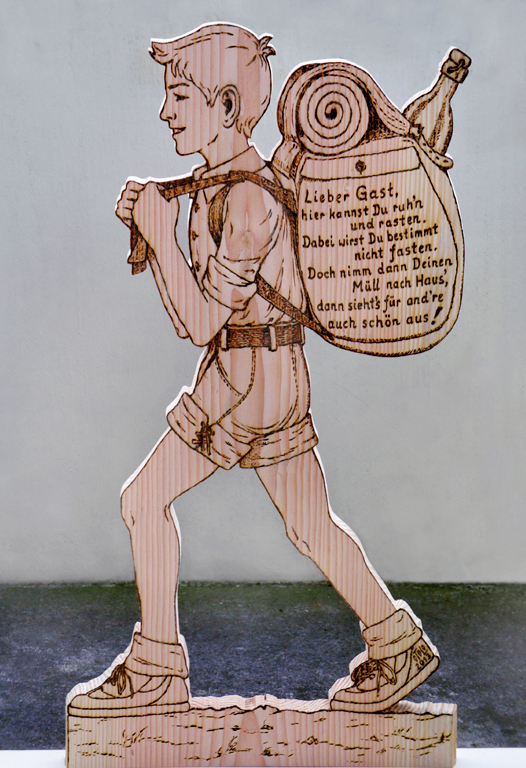 Lieber Gast,
hier kannst Du ruh'n
und rasten.
Dabei wirst Du bestimmt
nicht fasten.
Doch nimm dann Deinen
Müll nach Haus,
dann sieht's für and're
auch schön aus!